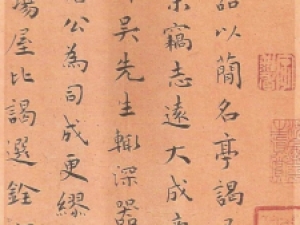 以簡名亭謁
竊志遠大成
吳先生輙深器
公為司成更繆
場屋比謁選銓